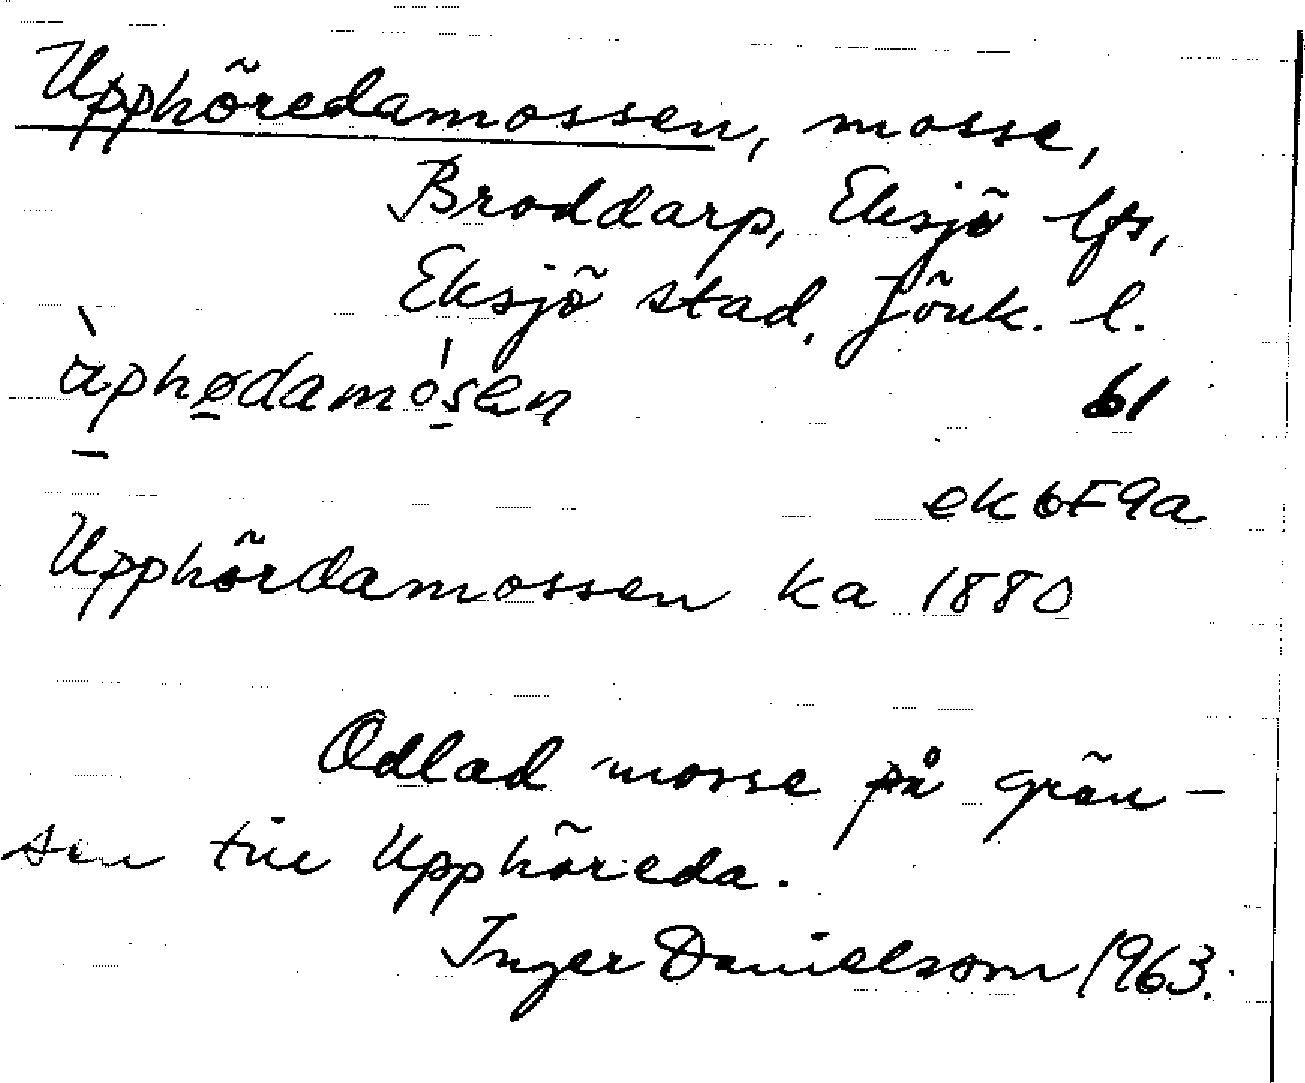 Upphöredamossen, mosse,
Broddarp, Eksjö lfs,
Eksjö stad, Jönk. l.
61
ek 6F9a
Upphördamossen ka 1880
Odlad mosse på grän-
sen till Upphöreda.
Inger Danielsson 1963.